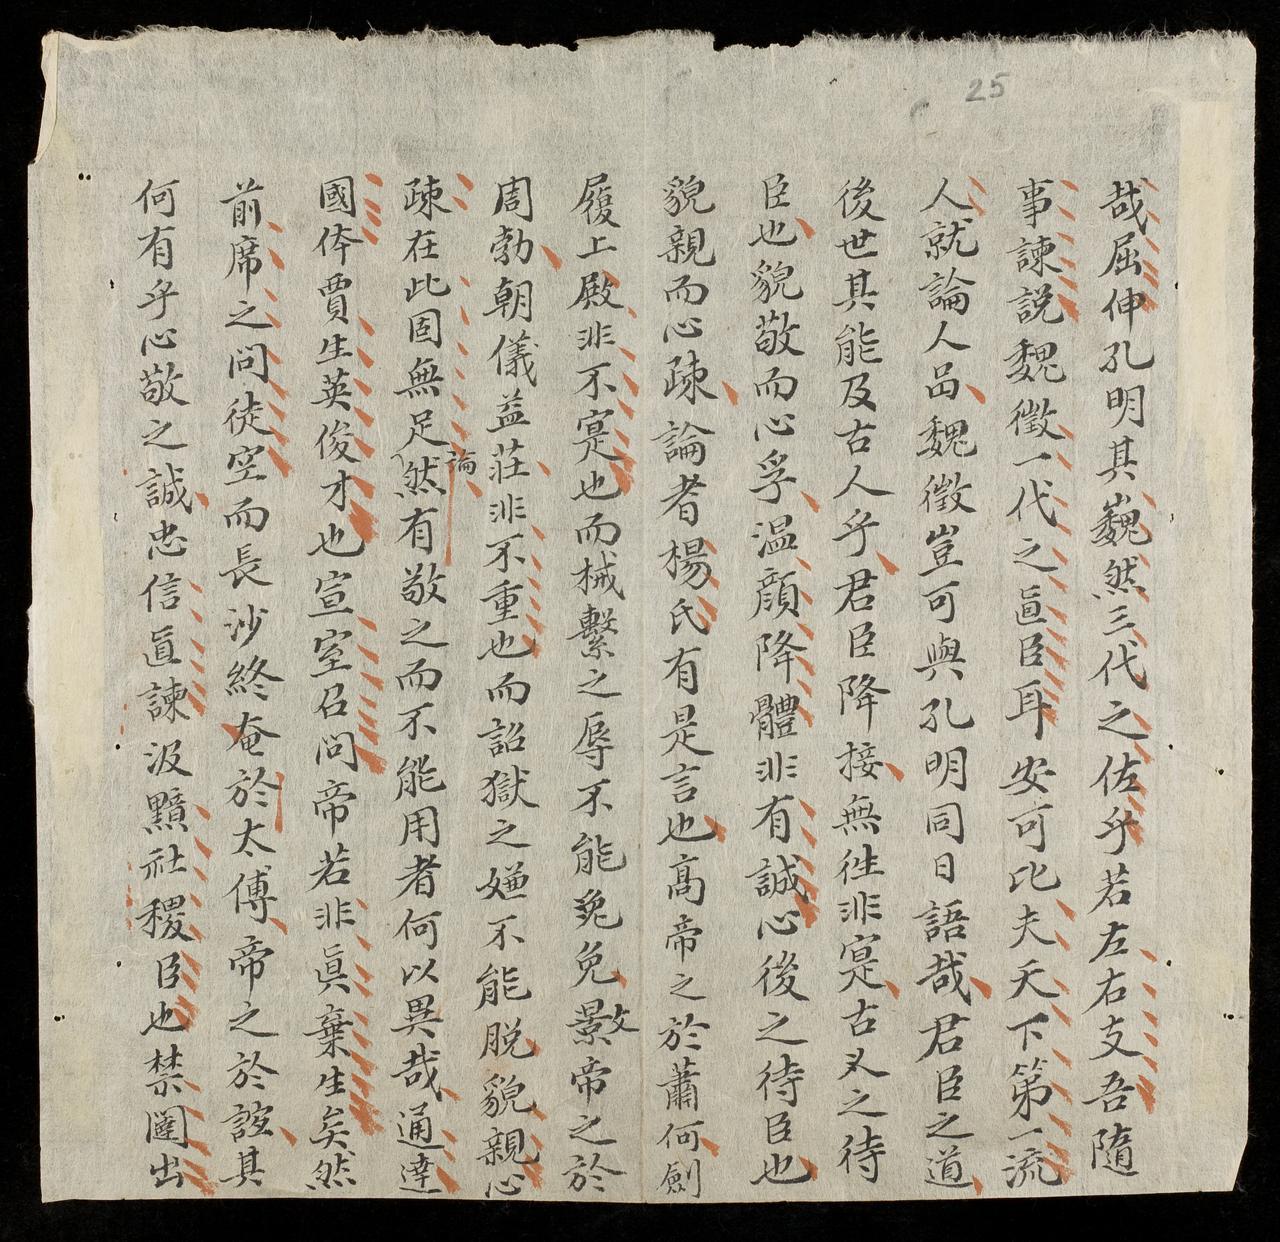 25
哉屈伸孔明其巍然三代之佐乎若左右支吾隨
事諫説魏徵一代之直臣耳安可比夫天下第一流
人就論人品魏徵豈可與孔明同日語哉君臣之道
後世其能及古人乎君臣降接無徃非寔古之待
臣也貌敬而心孚温顔降體非有誠心後之待臣也
貌親而心疎論者楊氏有是言也高帝之於蕭何劍
履上殿非不寔也而械繫之辱不能免景帝之於
周勃朝儀益莊非不重也而詔獄之嫌不能脱貌親心
疎在此固無足論然有敬之而不能用者何以異哉通達
國体賈生英俊才也宣室召問帝若非眞棄生矣然
前席之問徒空而長沙終奄於太傅帝之於誼其
何有乎心敬之誠忠信直諫汲黯社稷臣也禁闥出